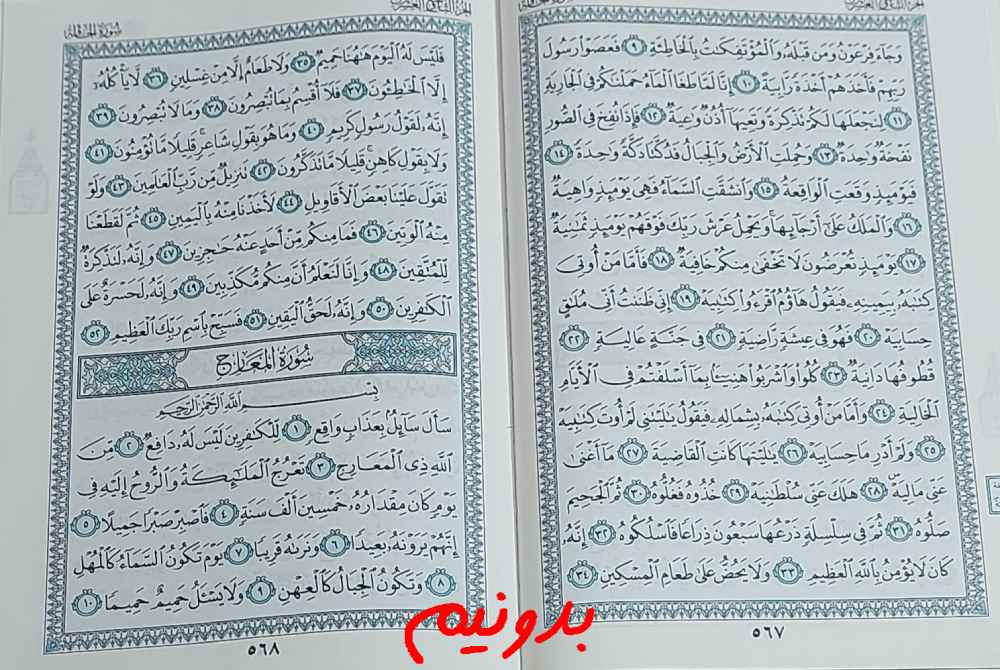 وَجَآءَ فِرۡعَوۡنُ وَمَن قَبۡلَهُۥ وَٱلۡمُؤۡتَفِكَٰتُ بِٱلۡخَاطِئَةِ ٩ فَعَصَوۡاْ رَسُولَ
رَبِّهِمۡ فَأَخَذَهُمۡ أَخۡذَةً رَّابِيَةً ١٠ إِنَّا لَمَّا طَغَا ٱلۡمَآءُ حَمَلۡنَٰكُمۡ فِي ٱلۡجَارِيَةِ
١١ لِنَجۡعَلَهَا لَكُمۡ تَذۡكِرَةً وَتَعِيَهَآ أُذُنٌ وَٰعِيَةٌ ١٢ فَإِذَا نُفِخَ فِي ٱلصُّورِ
نَفۡخَةٌ وَٰحِدَةٌ ١٣ وَحُمِلَتِ ٱلۡأَرۡضُ وَٱلۡجِبَالُ فَدُكَّتَا دَكَّةً وَٰحِدَةً ١٤
فَيَوۡمَئِذٍ وَقَعَتِ ٱلۡوَاقِعَةُ ١٥ وَٱنشَقَّتِ ٱلسَّمَآءُ فَهِيَ يَوۡمَئِذٍ وَاهِيَةٌ
١٦ وَٱلۡمَلَكُ عَلَىٰٓ أَرۡجَآئِهَا وَيَحۡمِلُ عَرۡشَ رَبِّكَ فَوۡقَهُمۡ يَوۡمَئِذٍ ثَمَٰنِيَةٌ
١٧ يَوۡمَئِذٍ تُعۡرَضُونَ لَا تَخۡفَىٰ مِنكُمۡ خَافِيَةٌ ١٨ فَأَمَّا مَنۡ أُوتِيَ
كِتَٰبَهُۥ بِيَمِينِهِۦ فَيَقُولُ هَآؤُمُ ٱقۡرَءُواْ كِتَٰبِيَهۡ ١٩ إِنِّي ظَنَنتُ أَنِّي مُلَٰقٍ
حِسَابِيَهۡ ٢٠ فَهُوَ فِي عِيشَةٍ رَّاضِيَةٍ ٢١ فِي جَنَّةٍ عَالِيَةٍ ٢٢
قُطُوفُهَا دَانِيَةٌ ٢٣ كُلُواْ وَٱشۡرَبُواْ هَنِيٓـَٔۢا بِمَآ أَسۡلَفۡتُمۡ فِي ٱلۡأَيَّامِ
ٱلۡخَالِيَةِ ٢٤ وَأَمَّا مَنۡ أُوتِيَ كِتَٰبَهُۥ بِشِمَالِهِۦ فَيَقُولُ يَٰلَيۡتَنِي لَمۡ أُوتَ كِتَٰبِيَهۡ
٢٥ وَلَمۡ أَدۡرِ مَا حِسَابِيَهۡ ٢٦ يَٰلَيۡتَهَا كَانَتِ ٱلۡقَاضِيَةَ ٢٧ مَآ أَغۡنَىٰ
عَنِّي مَالِيَهۡ ٢٨ هَلَكَ عَنِّي سُلۡطَٰنِيَهۡ ٢٩ خُذُوهُ فَغُلُّوهُ ٣٠ ثُمَّ ٱلۡجَحِيمَ
صَلُّوهُ ٣١ ثُمَّ فِي سِلۡسِلَةٍ ذَرۡعُهَا سَبۡعُونَ ذِرَاعًا فَٱسۡلُكُوهُ ٣٢ إِنَّهُۥ
كَانَ لَا يُؤۡمِنُ بِٱللَّهِ ٱلۡعَظِيمِ ٣٣ وَلَا يَحُضُّ عَلَىٰ طَعَامِ ٱلۡمِسۡكِينِ ٣٤
٥٦٧
فَلَيۡسَ لَهُ ٱلۡيَوۡمَ هَٰهُنَا حَمِيمٌ ٣٥ وَلَا طَعَامٌ إِلَّا مِنۡ غِسۡلِينٍ ٣٦ لَّا يَأۡكُلُهُۥٓ
إِلَّا ٱلۡخَٰطِـُٔونَ ٣٧ فَلَآ أُقۡسِمُ بِمَا تُبۡصِرُونَ ٣٨ وَمَا لَا تُبۡصِرُونَ ٣٩
إِنَّهُۥ لَقَوۡلُ رَسُولٍ كَرِيمٍ ٤٠ وَمَا هُوَ بِقَوۡلِ شَاعِرٍۚ قَلِيلًا مَّا تُؤۡمِنُونَ ٤١
وَلَا بِقَوۡلِ كَاهِنٍۚ قَلِيلًا مَّا تَذَكَّرُونَ ٤٢ تَنزِيلٌ مِّن رَّبِّ ٱلۡعَٰلَمِينَ ٤٣ وَلَوۡ
تَقَوَّلَ عَلَيۡنَا بَعۡضَ ٱلۡأَقَاوِيلِ ٤٤ لَأَخَذۡنَا مِنۡهُ بِٱلۡيَمِينِ ٤٥ ثُمَّ لَقَطَعۡنَا
مِنۡهُ ٱلۡوَتِينَ ٤٦ فَمَا مِنكُم مِّنۡ أَحَدٍ عَنۡهُ حَٰجِزِينَ ٤٧ وَإِنَّهُۥ لَتَذۡكِرَةٌ
لِّلۡمُتَّقِينَ ٤٨ وَإِنَّا لَنَعۡلَمُ أَنَّ مِنكُم مُّكَذِّبِينَ ٤٩ وَإِنَّهُۥ لَحَسۡرَةٌ عَلَى
ٱلۡكَٰفِرِينَ ٥٠ وَإِنَّهُۥ لَحَقُّ ٱلۡيَقِينِ ٥١ فَسَبِّحۡ بِٱسۡمِ رَبِّكَ ٱلۡعَظِيمِ ٥٢
سُورَةُ المَعَارِجِ
بِسۡمِ ٱللَّهِ ٱلرَّحۡمَٰنِ ٱلرَّحِيمِ
سَأَلَ سَآئِلُۢ بِعَذَابٍ وَاقِعٍ ١ لِّلۡكَٰفِرِينَ لَيۡسَ لَهُۥ دَافِعٌ ٢ مِّنَ
ٱللَّهِ ذِي ٱلۡمَعَارِجِ ٣ تَعۡرُجُ ٱلۡمَلَٰٓئِكَةُ وَٱلرُّوحُ إِلَيۡهِ فِي
يَوۡمٍ كَانَ مِقۡدَارُهُۥ خَمۡسِينَ أَلۡفَ سَنَةٍ ٤ فَٱصۡبِرۡ صَبۡرًا جَمِيلًا ٥
إِنَّهُمۡ يَرَوۡنَهُۥ بَعِيدًا ٦ وَنَرَىٰهُ قَرِيبًا ٧ يَوۡمَ تَكُونُ ٱلسَّمَآءُ كَٱلۡمُهۡلِ
٨ وَتَكُونُ ٱلۡجِبَالُ كَٱلۡعِهۡنِ ٩ وَلَا يَسۡـَٔلُ حَمِيمٌ حَمِيمًا ١٠
٥٦٨
بدونیم